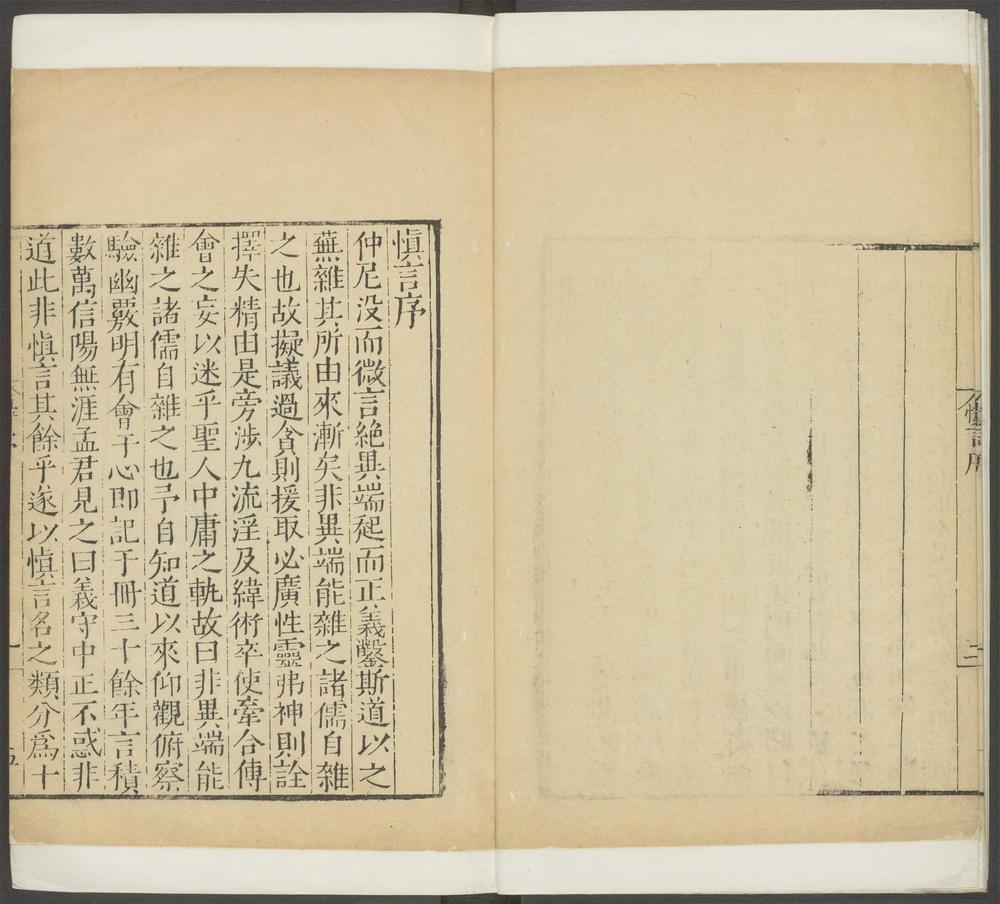 慎言序
二
慎言序
仲尼没而微言絶異端起而正義鑿斯道以之
蕪雜其所由來漸矣非異端能雜之諸儒自雜
之也故擬議過貪則援取必廣性靈弗神則詮
擇失精由是旁涉九流淫及緯術卒使牽合傅
會之妄以迷乎聖人中庸之軌故曰非異端能
雜之諸儒自雜之也予自知道以來仰觀俯察
驗幽覈明有會于心即記于冊三十餘年言積
數萬信陽無涯孟君見之曰義守中正不惑非
道此非慎言其餘乎遂以慎言名之類分爲十